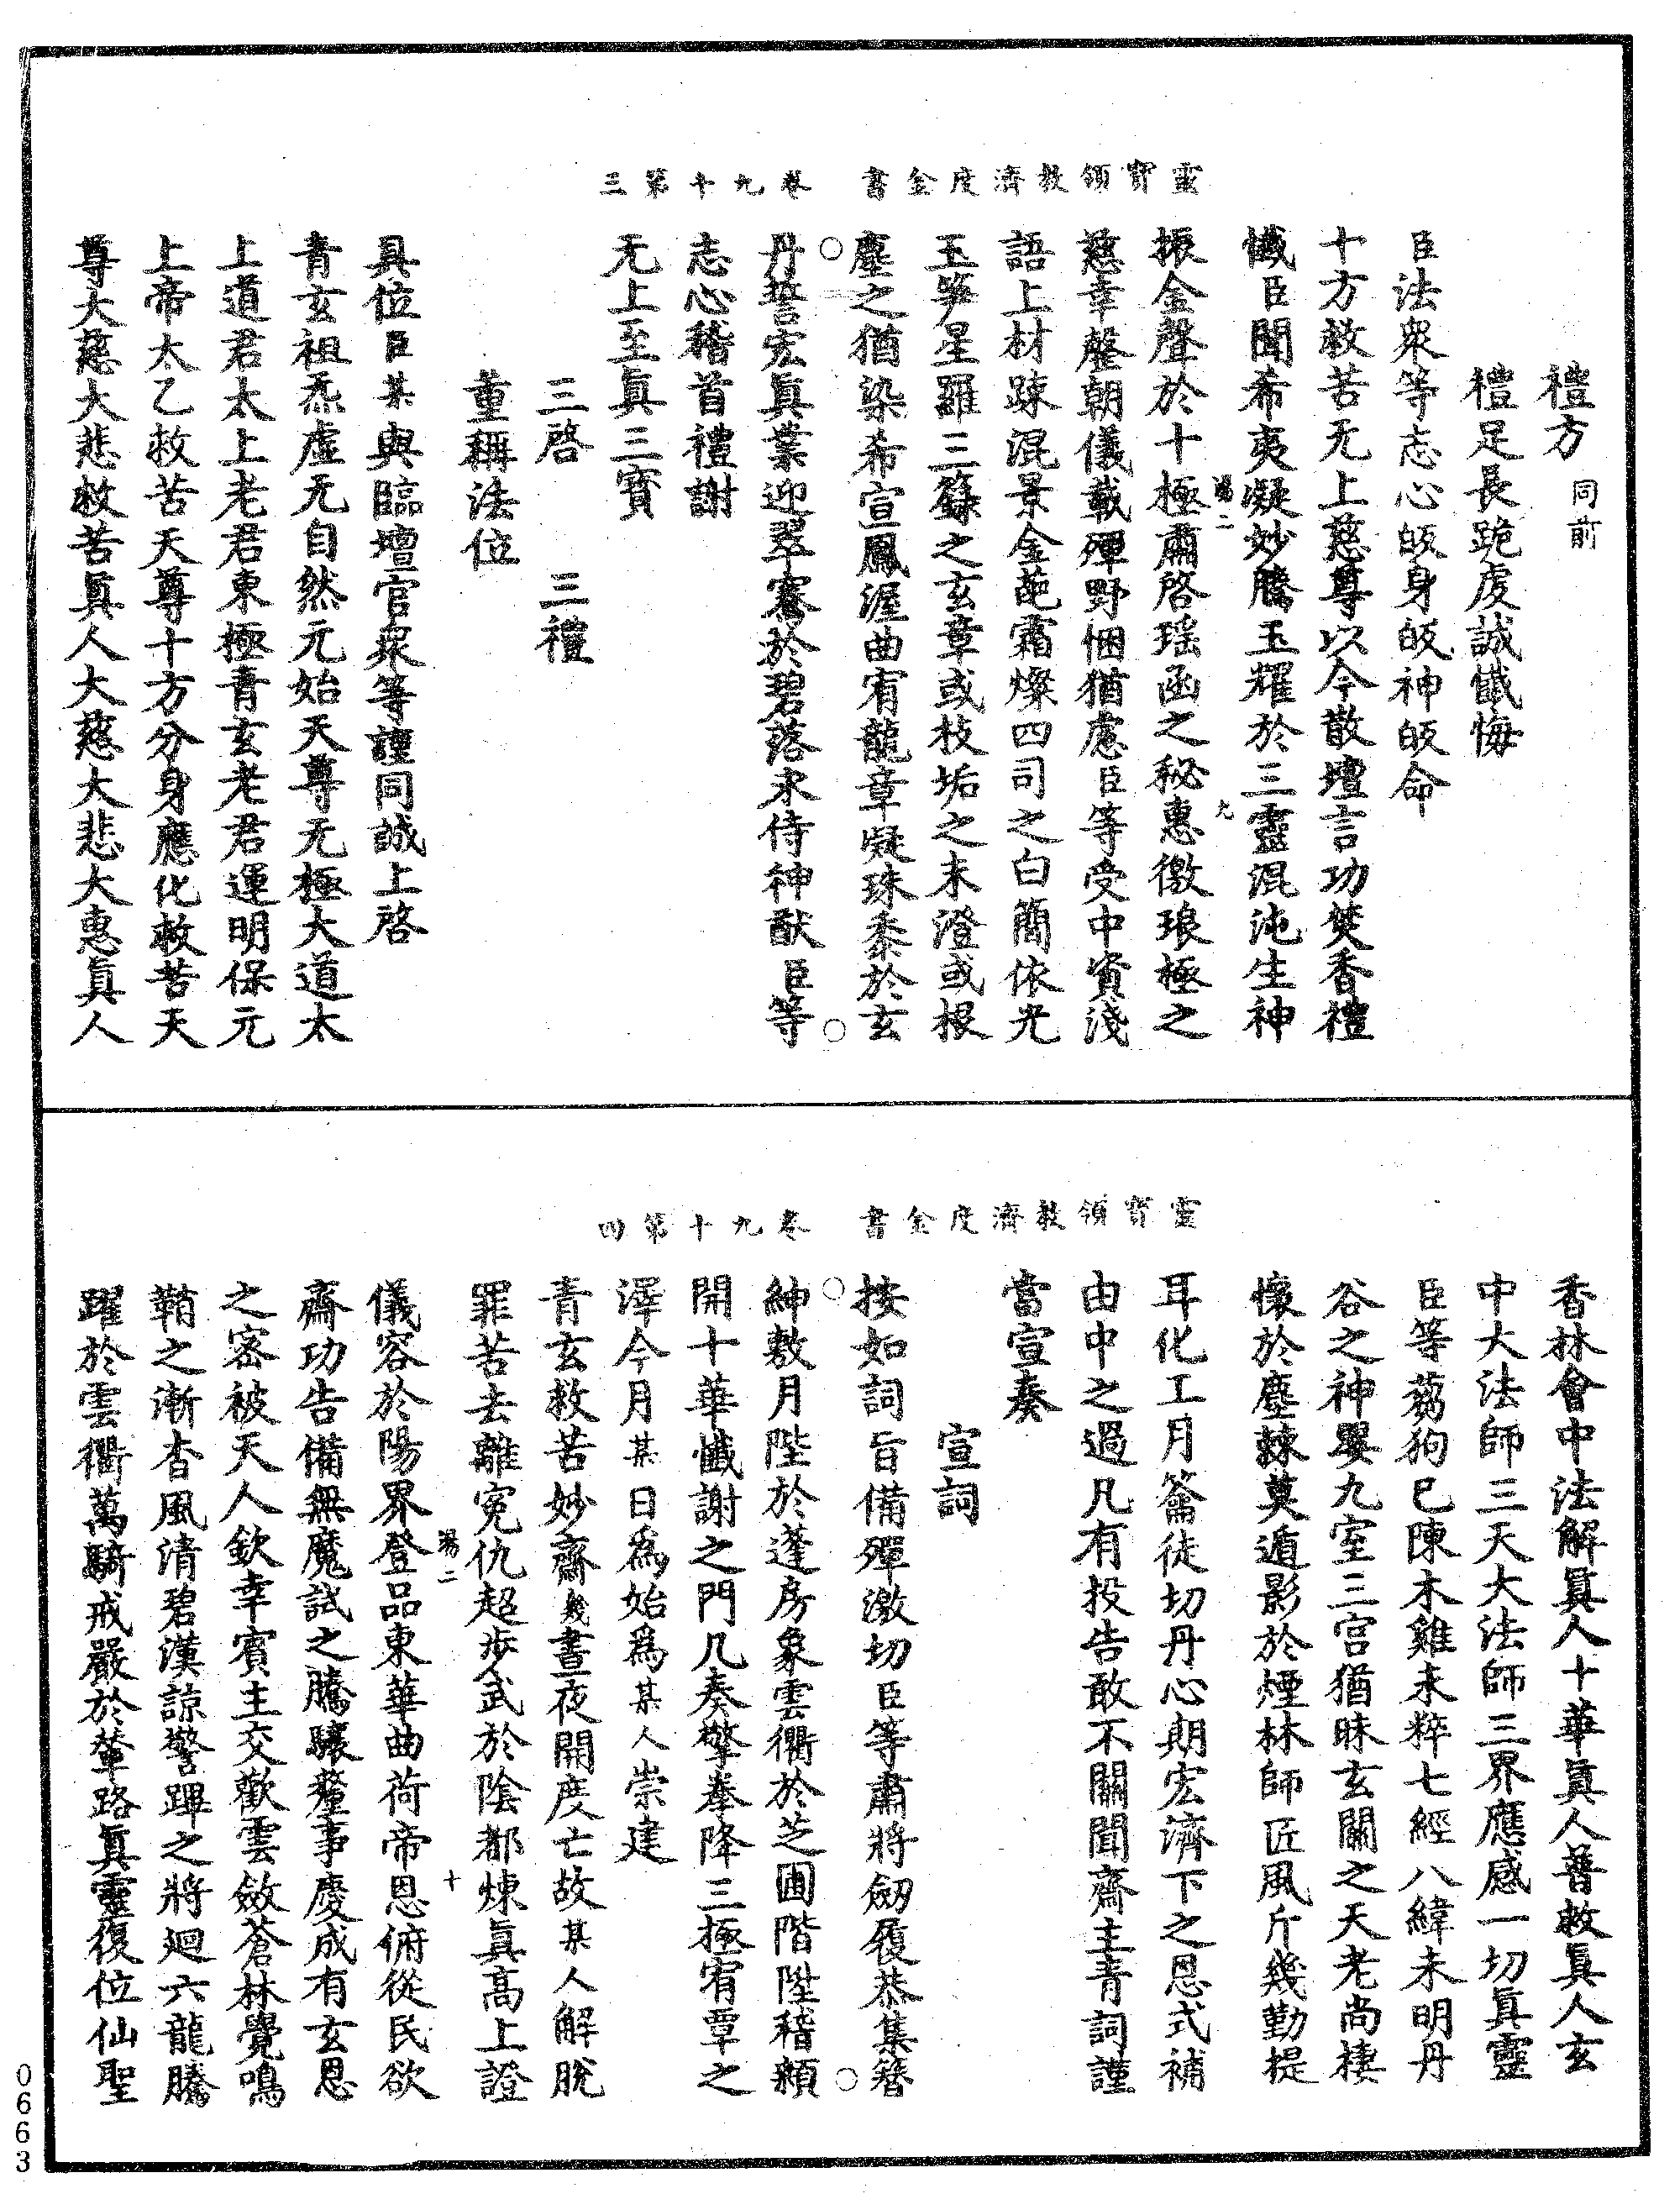 靈寶領教濟度金書　卷九十第三
禮方同前
禮足長跪虔誠懺悔
臣法衆等志心皈身皈神皈命
十方救苦无上慈尊以今散壇言功焚香禮
懺臣聞希夷凝妙騰玉耀於三靈混沌生神
振金聲於十極肅啓瑶函之秘惠徼琅極之
慈幸罄朝儀載殫野悃猶慮臣等受中資淺
語上材疎混景金葩霜燦四司之白簡依光
玉笋星羅三籙之玄章或枝垢之未澄或根
塵之猶染希宣鳳渥曲宥龍章凝珠黍於玄
丹誓宏眞業迎翠騫於碧落永侍神猷臣等
志心稽首禮謝
无上至眞三寳
三啓　三禮
重稱法位
具位臣某與臨壇官衆等謹同誠上啓
青玄祖炁虛无自然元始天尊无極大道太
上道君太上老君東極青玄老君運明保元
上帝太乙救苦天尊十方分身應化救苦天
尊大慈大悲救苦眞人大慈大悲大惠眞人
靈寶領教濟度金書　卷九十第四
香林會中法解眞人十華眞人普救眞人玄
中大法師三天大法師三界應感一切眞靈
臣等蒭狗已陳木雞未粹七經八緯未明丹
谷之神嬰九室三宫猶昧玄關之天老尚棲
懷於塵棘莫遁影於煙林師匠風斤幾勤提
耳化工月籥徒切丹心期宏濟下之恩式補
由中之過凡有投告敢不關聞齋主青詞謹
當宣奏
宣詞
按如詞旨備殫激切臣等肅將劒履恭集簪
紳敷月陛於蓬房象雲衢於芝圃階陞稽顙
開十華懺謝之門几奏擎拳降三極宥覃之
澤今月某日爲始爲某人崇建
青玄救苦妙齋幾晝夜開度亡故某人解脫
罪苦去離寃仇超步武於陰都煉眞高上證
儀容於陽界登品東華曲荷帝恩俯從民欲
齋功告備無魔試之騰驤釐事慶成有玄恩
之密被天人欽幸賓主交歡雲斂蒼林覺鳴
鞘之漸杳風清碧漢諒警蹕之將廻六龍騰
躍於雲衢萬騎戒嚴於輦路眞靈復位仙聖
湯二
九
湯二
十
0663